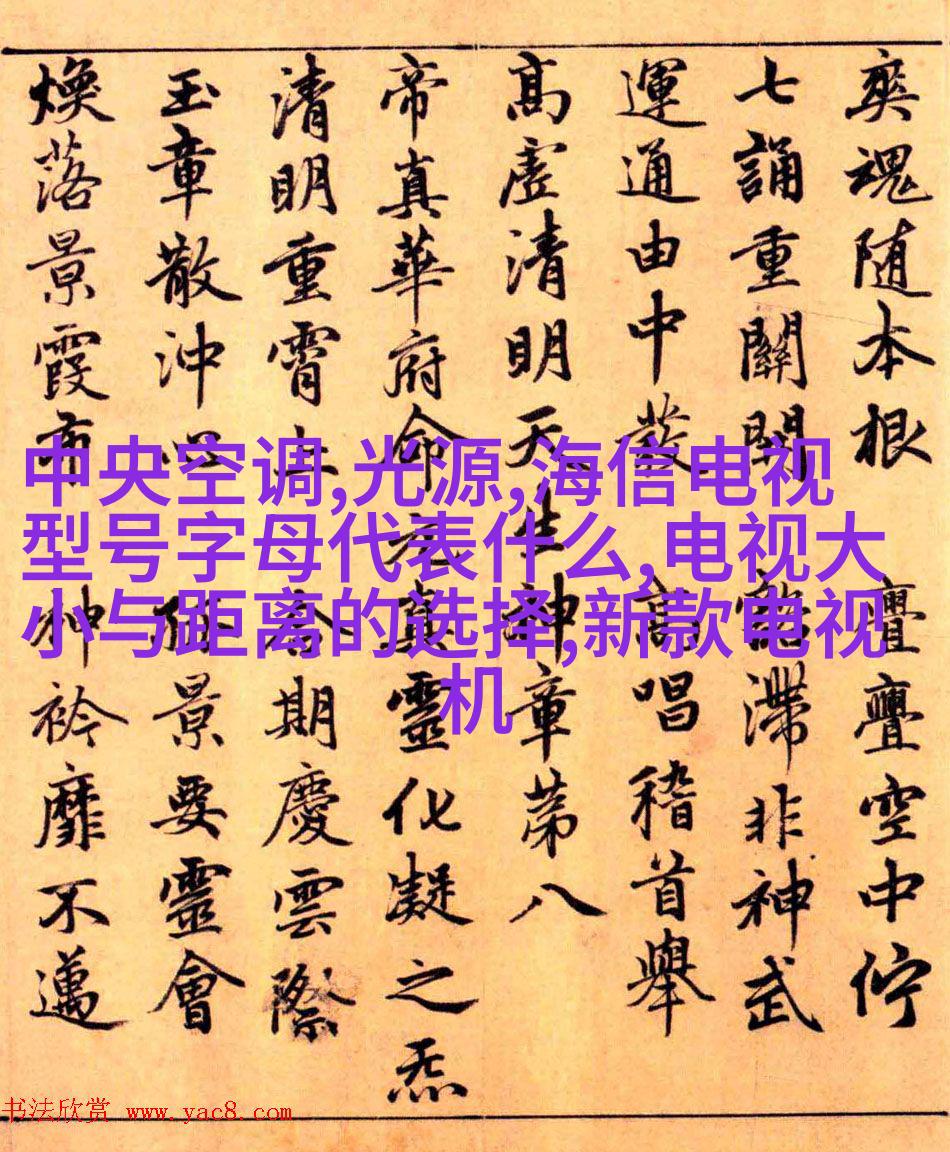 奕魂随本根 亹亹空中佇
七誦重關開 滯非神武
運通由中發 高唱稽首舉
高虛清明天生神章第八
帝真華府命元真靈化凝之炁
清明重霄上 合期慶雲際
玉章散沖心 俯景要靈會
煥落景霞布 神衿靡不邁
中央空调,光源,海信电视
型号字母代表什么,电视大
小与距离的选择,新款电视
机
书法欣赏 www.yac8.com